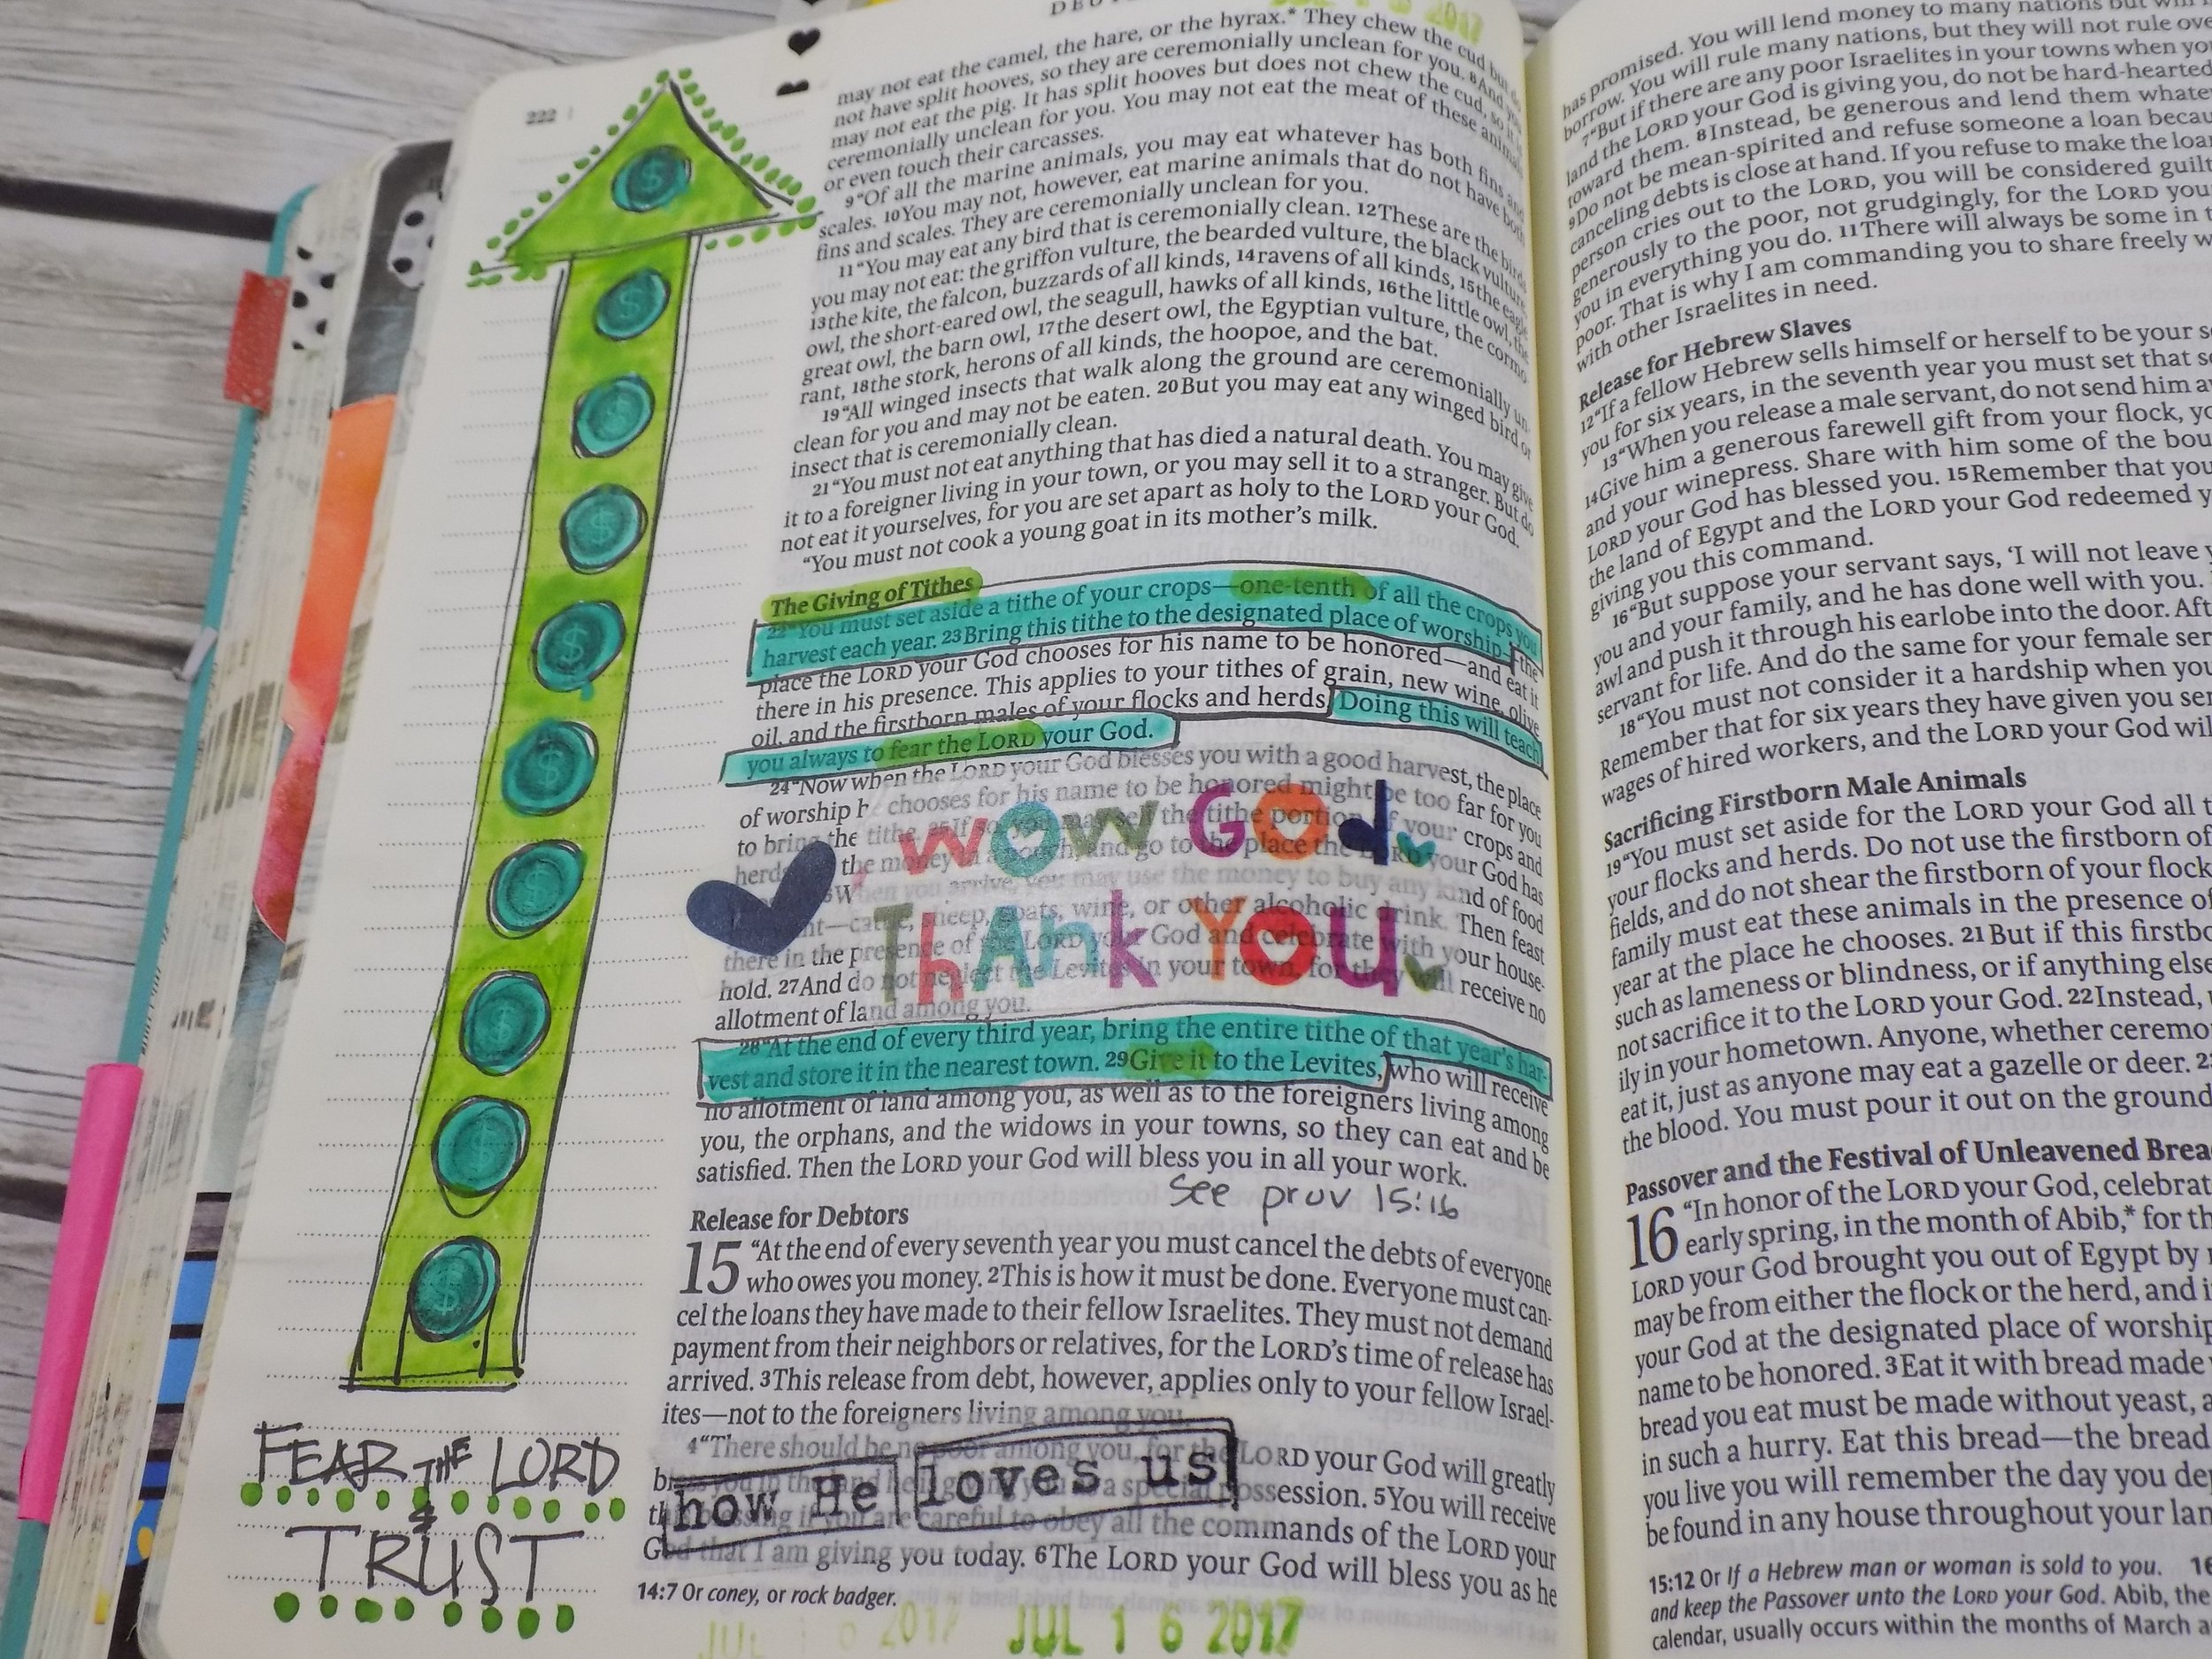 222
may not eat the camel, the hare, or the hyrax.* They chew the cud but
not have split hooves, so they are ceremonially unclean for you. 8And you
may not eat the pig. It has split hooves but does not chew the cud, so it
ceremonially unclean for you. You may not eat the meat of these animals
or even touch their carcasses.
9“Of all the marine animals, you may eat whatever has both fins and
scales. 10You may not, however, eat marine animals that do not have both
fins and scales. They are ceremonially unclean for you.
11“You may eat any bird that is ceremonially clean. 12These are the birds
you may not eat: the griffon vulture, the bearded vulture, the black vulture,
13the kite, the falcon, buzzards of all kinds, 14ravens of all kinds, 15the eagle
owl, the short-eared owl, the seagull, hawks of all kinds, 16the little owl, the
great owl, the barn owl, 17the desert owl, the Egyptian vulture, the cormo
rant, 18the stork, herons of all kinds, the hoopoe, and the bat.
19“All winged insects that walk along the ground are ceremonially un-
clean for you and may not be eaten. 20But you may eat any winged bird or
insect that is ceremonially clean.
21“You must not eat anything that has died a natural death. You may give
it to a foreigner living in your town, or you may sell it to a stranger. But do
not eat it yourselves, for you are set apart as holy to the LORD your God.
“You must not cook a young goat in its mother’s milk.
The Giving of Tithes
22“You must set aside a tithe of your crops—one-tenth of all the crops you
harvest each year. 23Bring this tithe to the designated place of worship—the
place the LORD your God chooses for his name to be honored—and eat it
there in his presence. This applies to your tithes of grain, new wine, olive
oil, and the firstborn males of your flocks and herds. Doing this will teach
you always to fear the LORD your God.
24“Now when the LORD your God blesses you with a good harvest, the place
of worship h chooses for his name to be honored might be too far for you
to bring the tithe. 25If so, you may sell the tithe portion of your crops and
herds the money in a pouch, and go to the place the LORD your God has
When you arrive, you may use the money to buy any kind of food
cattle, sheep, goats, wine, or other alcoholic drink. Then feast
there in the presence of the LORD your God and celebrate with your house-
hold. 27And do not neglect the Levites in your town, for they will receive no
allotment of land among you.
WOW GOD,
THANK YOU
28“At the end of every third year, bring the entire tithe of that year’s har-
vest and store it in the nearest town. 29Give it to the Levites, who will receive
no allotment of land among you, as well as to the foreigners living among
you, the orphans, and the widows in your towns, so they can eat and be
satisfied. Then the LORD your God will bless you in all your work.
See prov 15:16
Release for Debtors
15 “At the end of every seventh year you must cancel the debts of everyone
who owes you money. 2This is how it must be done. Everyone must can-
cel the loans they have made to their fellow Israelites. They must not demand
payment from their neighbors or relatives, for the LORD’s time of release has
arrived. 3This release from debt, however, applies only to your fellow Israel-
ites—not to the foreigners living among you.
4“There should be no poor among you, for the LORD your God will greatly
bless you in the land he is giving you as a special possession. 5You will receive
this blessing if you are careful to obey all the commands of the LORD your
God that I am giving you today. 6The LORD your God will bless you as he
how He loves us
14:7 Or coney, or rock badger.
JUL 16 2017 JUL 16 2017
FEAR THE LORD
&
TRUST
has promised. You will lend money to many nations but will
borrow. You will rule many nations, but they will not rule ove
7“But if there are any poor Israelites in your towns when you
land the LORD your God is giving you, do not be hard-hearted
toward them. 8Instead, be generous and lend them whate
9Do not be mean-spirited and refuse someone a loan becau
canceling debts is close at hand. If you refuse to make the loa
person cries out to the LORD, you will be considered guilt
generously to the poor, not grudgingly, for the LORD you
you in everything you do. 11There will always be some in t
poor. That is why I am commanding you to share freely w
with other Israelites in need.
Release for Hebrew Slaves
12“If a fellow Hebrew sells himself or herself to be your s
you for six years, in the seventh year you must set that s
13“When you release a male servant, do not send him a
14Give him a generous farewell gift from your flock, yo
and your winepress. Share with him some of the bou
LORD your God has blessed you. 15Remember that you
the land of Egypt and the LORD your God redeemed y
giving you this command.
16“But suppose your servant says, ‘I will not leave y
you and your family, and he has done well with you.
awl and push it through his earlobe into the door. Aft
servant for life. And do the same for your female ser
18“You must not consider it a hardship when you
Remember that for six years they have given you se
wages of hired workers, and the LORD your God wil
Sacrificing Firstborn Male Animals
19“You must set aside for the LORD your God all t
your flocks and herds. Do not use the firstborn of
fields, and do not shear the firstborn of your flock
family must eat these animals in the presence of
year at the place he chooses. 21But if this firstbo
such as lameness or blindness, or if anything else
not sacrifice it to the LORD your God. 22Instead,
ily in your hometown. Anyone, whether ceremo
eat it, just as anyone may eat a gazelle or deer. 2
the blood. You must pour it out on the ground
Passover and the Festival of Unleavened Brea
16 “In honor of the LORD your God, celebrat
early spring, in the month of Abib,* for th
LORD your God brought you out of Egypt by
may be from either the flock or the herd, and i
your God at the designated place of worship
name to be honored. 3Eat it with bread made
bread you eat must be made without yeast, a
in such a hurry. Eat this bread—the bread
you live you will remember the day you de
be found in any house throughout your lan
15:12 Or If a Hebrew man or woman is sold to you. 16
and keep the Passover unto the LORD your God. Abib, the
calendar, usually occurs within the months of March a